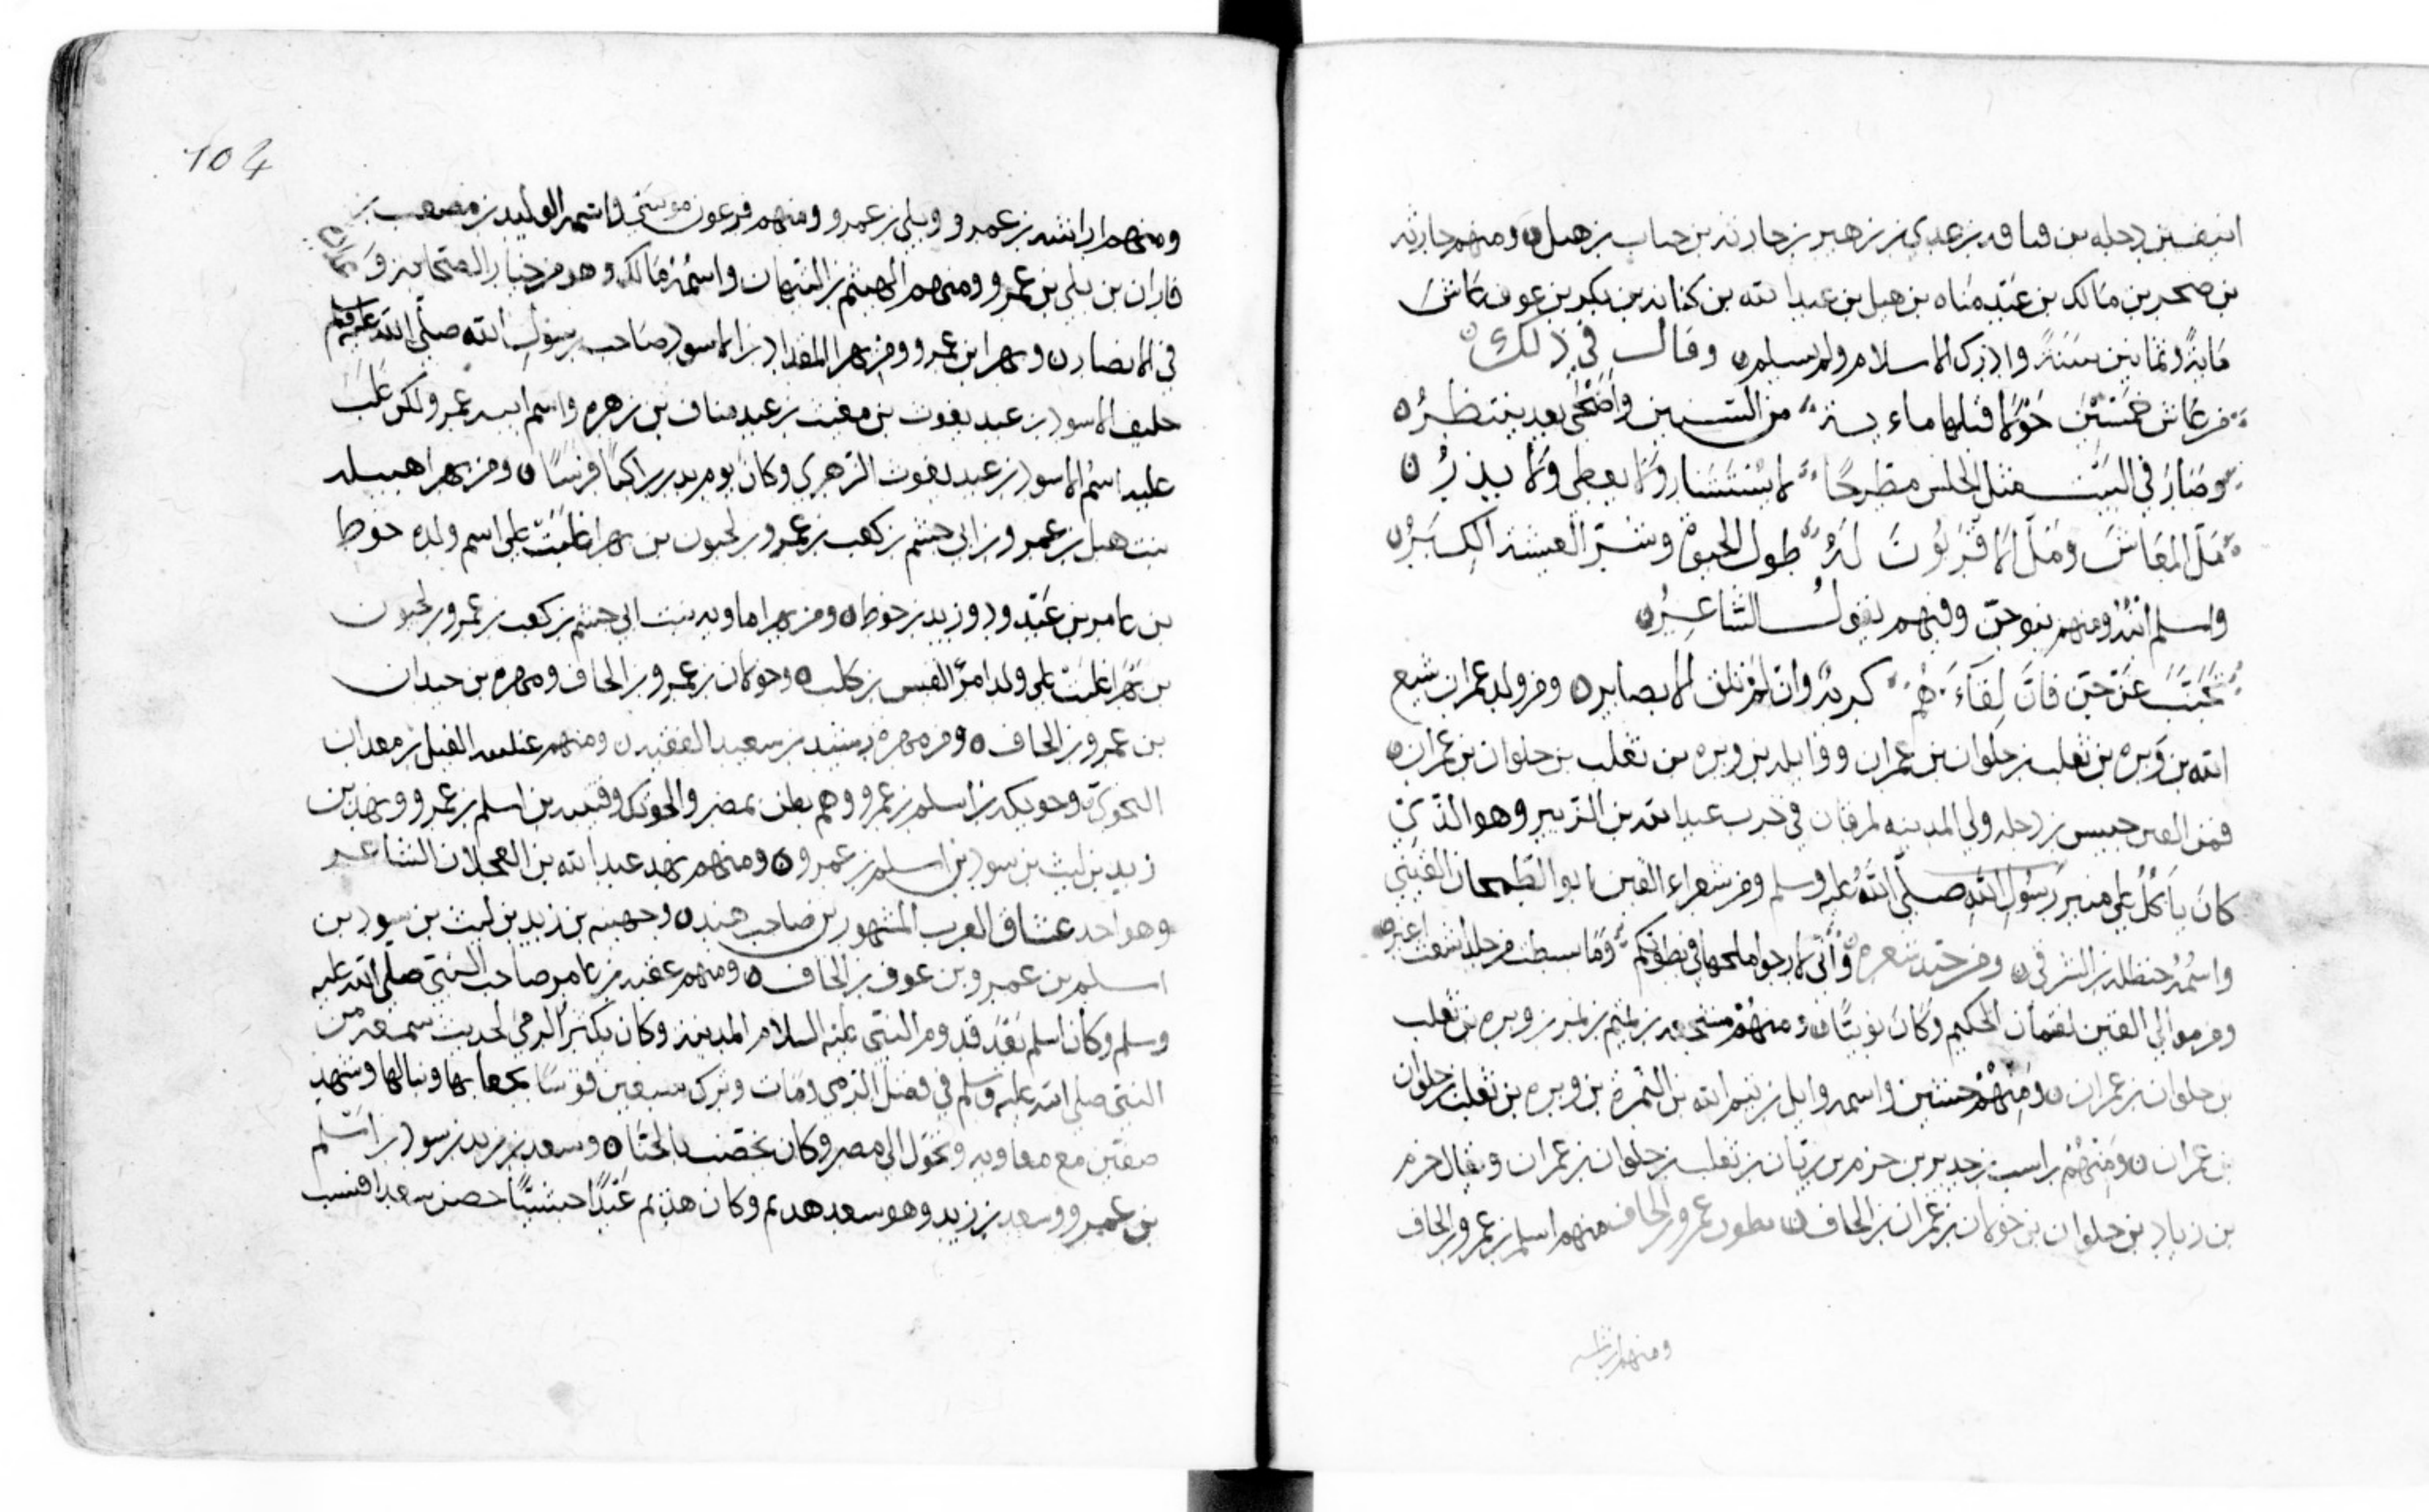 بن دجله بن قنافه بن عدي بن زهير بن حارثه بن جناب بن هبل ومنهم حارثه
بن صخر بن مالك بن عبد مناه بن هبل بن عبد الله بن كنانه بن بكر بن عوف عاش
مايةً وثمانين سنةً وادرك الاسلام ولم يسلم وقال في ذلك
من عاش خمسين حولا قبلها مايـة من السنين واضحى بعد ينتظرُ
وصار في البيت مثل الحلس مطرحًا لا يستشار ولا يعطي ولا يذرُ
ملّ المعاش وملّ الاقربون له طول الحيوة وشرّ العيشة الكبرُ
واسلم ابنه ومنهم بنو جنّ وفيهم يقول الشاعر
تجنّب عن جنّ فان لقاءهم كريه وان لم تلق الا بصابر ومن ولد عمران شيع
الله بن وبره بن ثعلب بن حلوان بن عمران ووايله بن وبره بن تغلب بن حلوان بن عمران
فمن القين حبيس بن دجله ولي المدينه لمروان في حرب عبد الله بن الزبير وهو الذي
كان ياكل على منبر رسول الله صلى الله عليه وسلم ومن شعراء القين ابو الطمحان القيني
واسمه حنظله بن الشرقي ومن جيد شعره واني لارجو ملحها في بطونكم وما بسطت من جلد اشعث اغبر
ومن موالي القين لقمان الحكيم وكان نوبيًا ومنهم مشجعه بن التيم بن النمر بن وبره بن ثعلب
بن حلوان بن عمران ومنهم خشين واسمه وايل بن تيم الله بن النمره بن وبره بن ثعلب بن حلوان
بن عمران ومنهم راسب بن جدير بن حزم بن ريان بن ثعلب بن حلوان بن عمران ويقال خرم
بن زياد بن حلوان بن خولان بن عمران بن الحاف بطون عمرو بن الحاف منهم اسلم بن عمرو بن الحاف
ومنهم اراشه
104
ومنهم اراشه بن عمرو وبلي بن عمرو ومنهم فرعون موسى واسمه الوليد بن مصعب بن
فاران بن بلي بن عمرو ومنهم الهيثم بن التيهان واسمه مالك وهو من خيار الصحابه
في الانصار وبهرا بن عمرو ومن بهرا المقداد بن الاسود صاحب رسول الله صلى الله عليه وسلم
حليف الاسود بن عبد يغوث بن مغيث بن عبد مناف بن زهره واسم ابيه عمرو لكن غلب
عليه اسم الاسود بن عبد يغوث الزهري وكان يوم بدر راكبًا فرسًا ومن بهرا هبيله
بنت هبل بن عمرو بن ابي جشم بن كعب بن عمرو بن لحيون بن بهرا غلبت على اسم ولده خوط
بن عامر بن عبد ود وزيد بن خوط ومن بهرا ماويه بنت ابي جشم بن كعب بن عمرو بن لحيون
بن بهرا غلبت على ولد امرّ القيس بن كلب وخولان بن عمرو بن الحاف ومهره بن حيدان
بن عمرو بن الحاف ومن مهره رشيد بن سعيد الفقيه ومنهم عنبسه الفيل بن معدان
النحوي وحويكه بن اسلم بن عمرو وهم بطن بمصر والحويك وقبيه بن اسلم بن عمرو ونهد بن
زيد بن ليث بن سود بن اسلم بن عمرو ومنهم نهد عبد الله بن العجلان الشاعر
وهو احد عشاق العرب المشهورين صاحب هند وجهينه بن زيد بن ليث بن سود بن
اسلم بن عمرو بن عوف بن الحاف ومنهم عقبه بن عامر صاحب النبي صلى الله عليه
وسلم وكان اسلم بعد قدوم النبي عليه السلام المدينه وكان يكثر الرمي لحديث سمعه من
النبي صلى الله عليه وسلم في فضل الرمي ومات وترك سبعين قوسًا بجعابها ونبالها وشهد
صفين مع معاويه وتحول الى مصر وكان يخضب بالحنا وسعد بن زيد بن سود بن اسلم
بن عمرو وسعد بن زيد وهو سعد هديم وكان هذيم عبدًا حبشيًا حضن سعدا فنسب